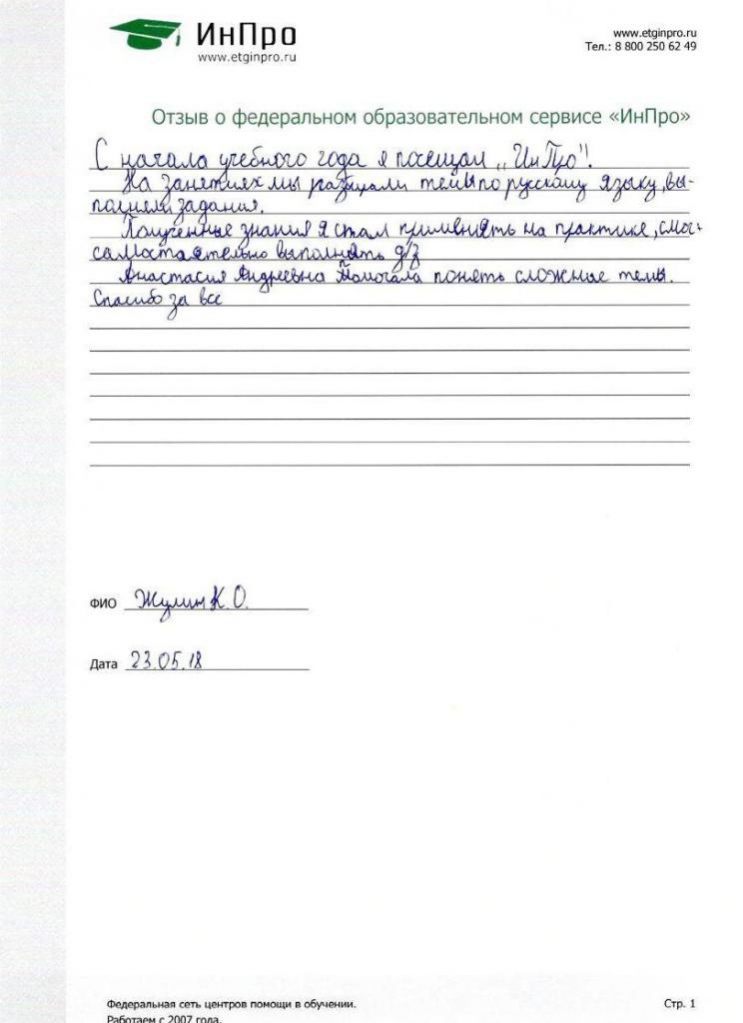 ИнПро
www.etginpro.ru
www.etginpro.ru
Тел.: 8 800 250 62 49
Отзыв о федеральном образовательном сервисе «ИнПро»
С начала учебного года я посещал „ИнПро".
На занятиях мы разбирали темы по русскому языку, вы-
полнели задания.
Полученные знания я стал применять на практике, смог
самостоятельно выполнять д/з
Анастасия Андреевна помогала понять сложные темы.
Спасибо за все
ФИО Жулин К.О.
Дата 23.05.18
Федеральная сеть центров помощи в обучении.
Стр. 1
Работаем с 2007 года.